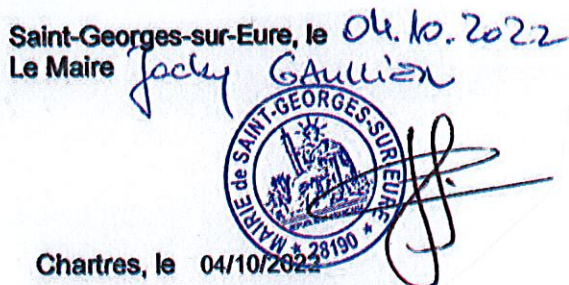 Saint-Georges-sur-Eure, le 04.10.2022
Le Maire Jacky GAULLIER
MAIRIE de SAINT-GEORGES-SUR-EURE
★ 28190 ★
Chartres, le 04/10/2022